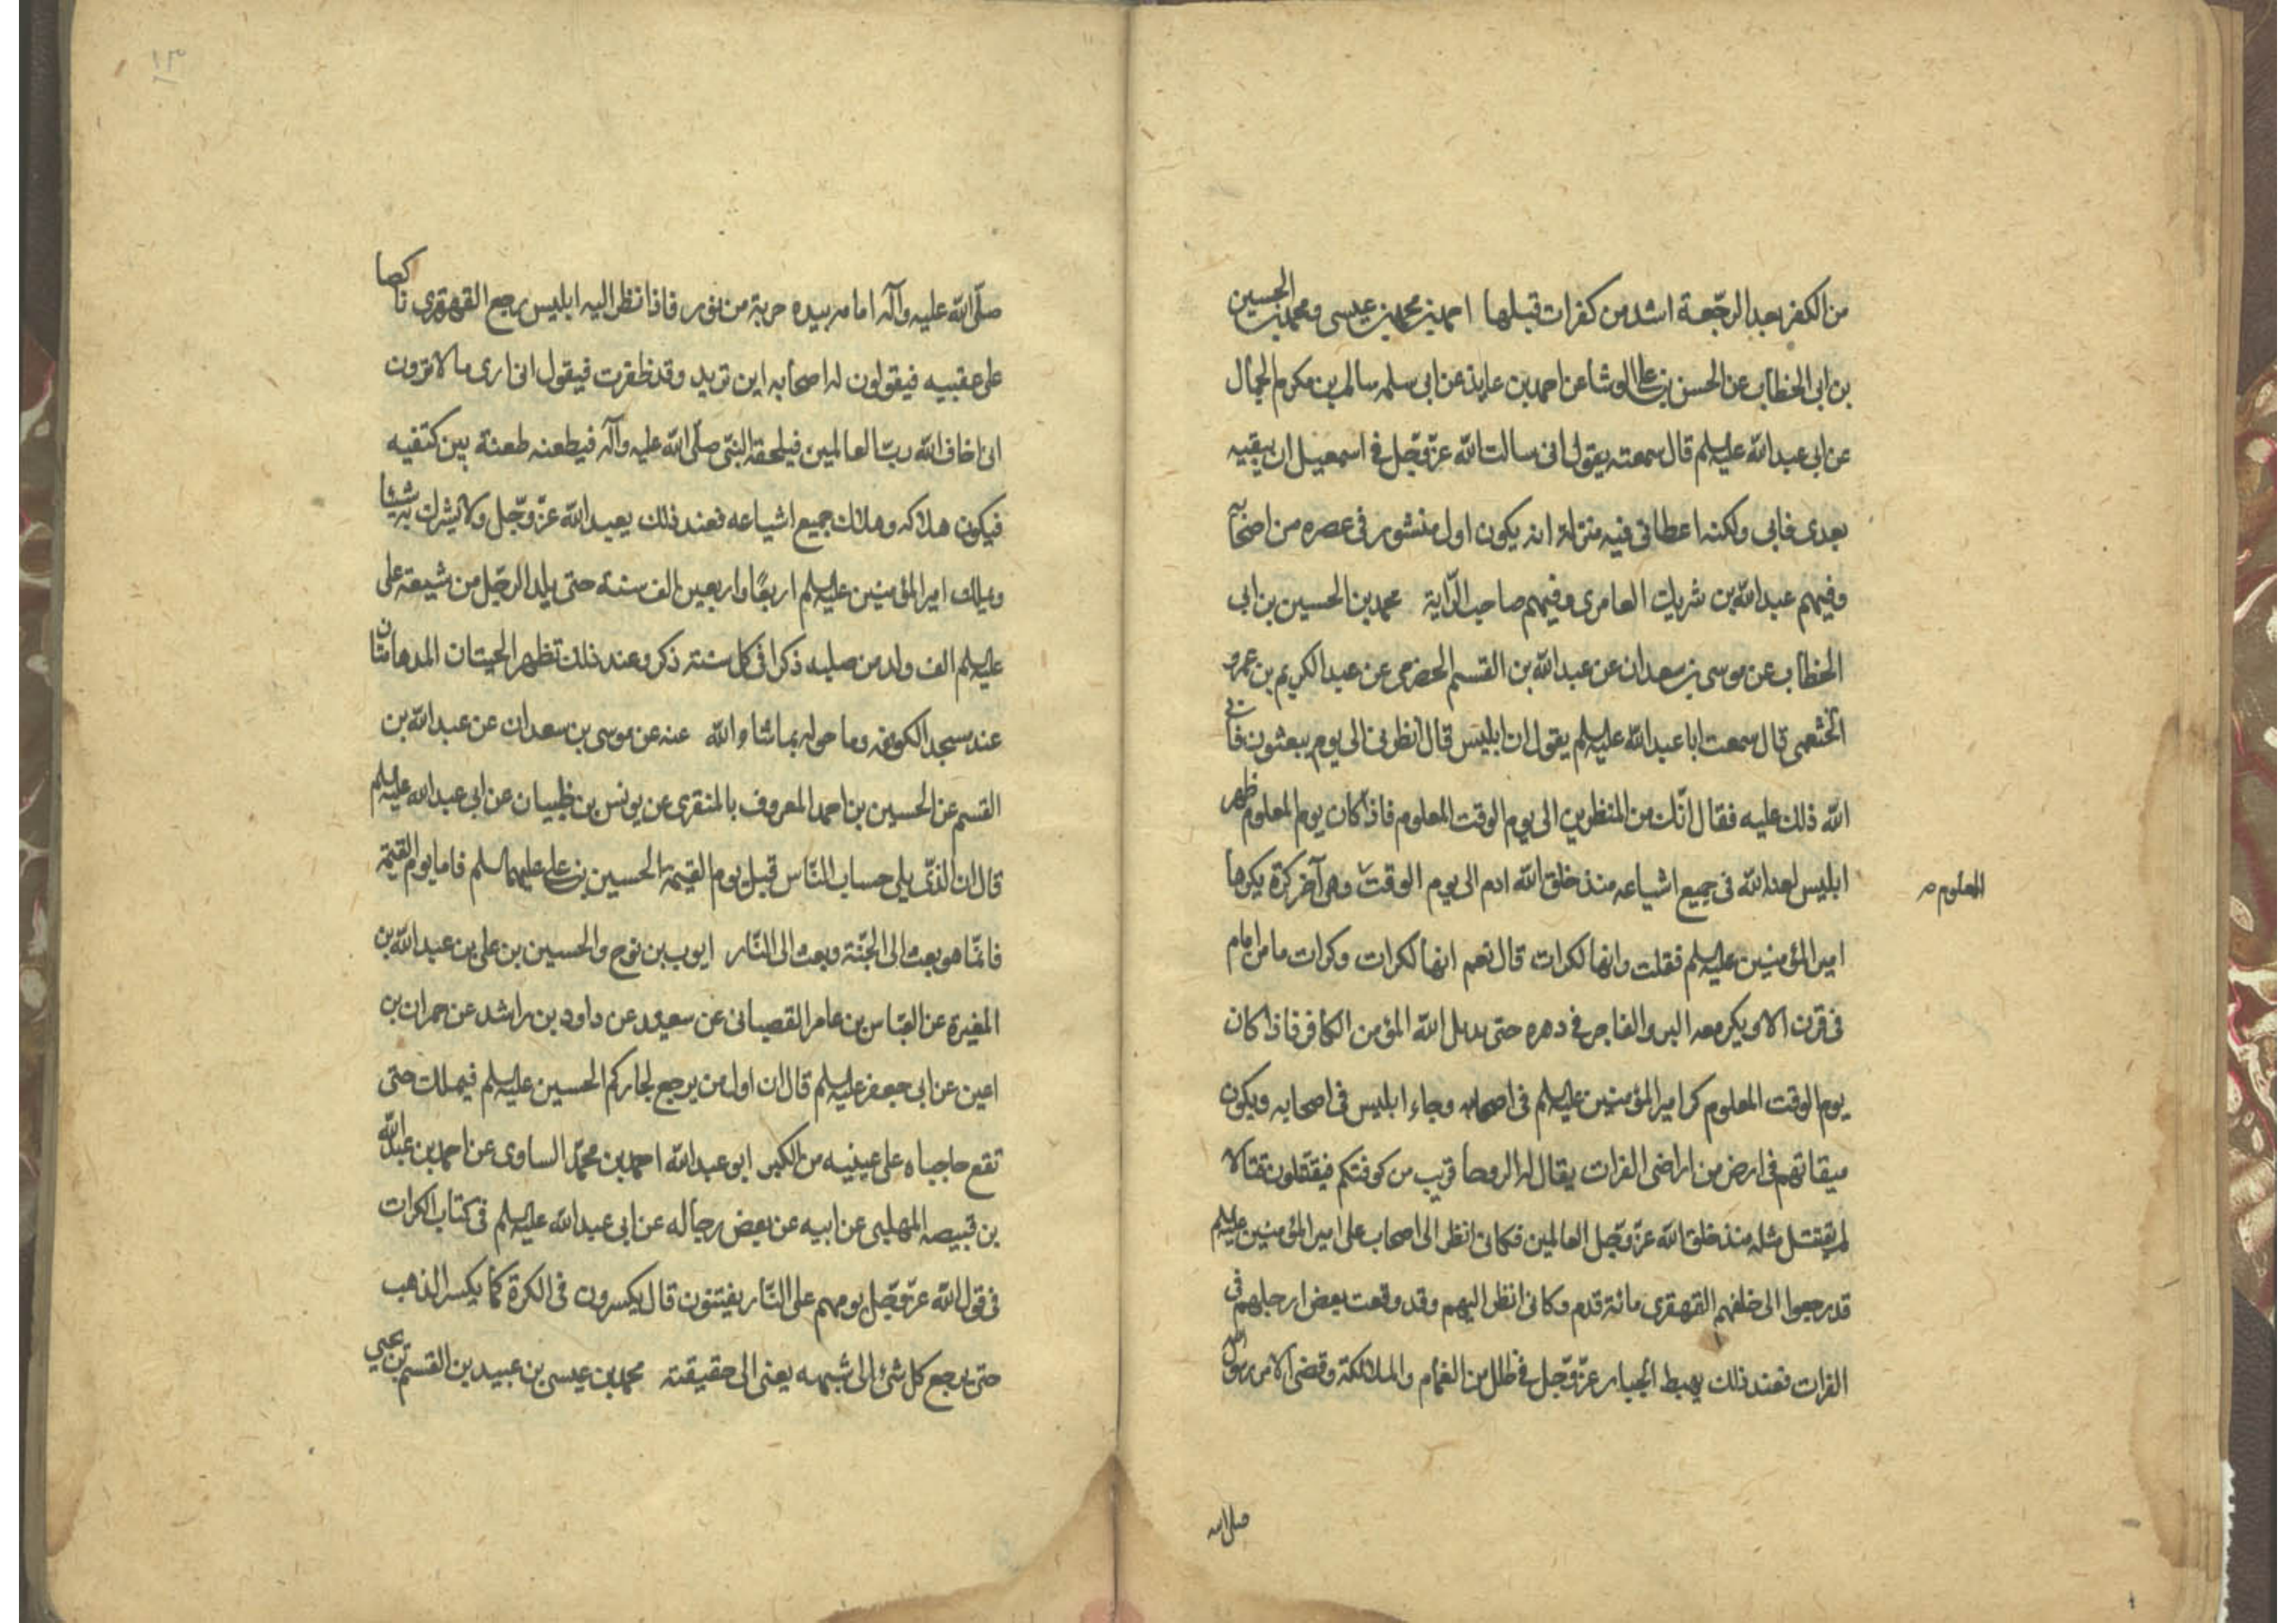 من الكفر بعد الرجعة اشد من كفرات قبلها احمد بن محمد بن عيسى ومحمد بن الحسين
بن ابى الخطاب عن الحسن بن على الوشا عن احمد بن عايذ عن ابى سلمه سالم بن مكرم الجمال
عن ابى عبد الله عليه السلم قال سمعته يقول انى سالت الله عزّ وجّل فى اسمعيل ان يبقيه
بعدى فابى ولكنه اعطانى فيه منزلة انه يكون اول منشور فى عصره من اصحابه
وفيهم عبد الله بن شريك العامرى وفيهم صاحب الرّاية محمد بن الحسين بن ابى
الخطاب عن موسى بن سعدان عن عبد الله بن القسم الحضرمى عن عبد الكريم بن عمرو
الخثعمى قال سمعت ابا عبد الله عليه السلم يقول ان ابليس قال انظرنى الى يوم يبعثون فابى
الله ذلك عليه فقال انّك من المنظرين الى يوم الوقت المعلوم فاذا كان يوم المعلوم ظهر
ابليس لعنه الله فى جميع اشياعه منذ خلق الله ادم الى يوم الوقت وهى آخر كرّة يكرها
المعلوم
امير المؤمنين عليه السلم فقلت وانها لكرات قال نعم انها لكرات وكرات ما من امام
فى قرن الا ويكر معه البر والفاجر فى دهره حتى يديل الله المؤمن الكافر فاذا كان
يوم الوقت المعلوم كر امير المؤمنين عليه السلم فى اصحابه وجاء ابليس فى اصحابه ويكون
ميقاتهم فى ارض من اراضى الفرات يقال له الروحا قريب من كوفتكم فيقتتلون قتالا
لم يقتتل مثله منذ خلق الله عزّ وجّل العالمين فكانى انظر الى اصحاب على امير المؤمنين عليه السلم
قد رجعوا الى خلفهم القهقرى مائة قدم وكانى انظر اليهم وقد وقعت بعض ارجلهم فى
الفرات فعند ذلك يهبط الجبار عزّ وجّل فى ظلل من الغمام والملائكة وقضى الامر رسول الله
صلى الله
صلّى الله عليه وآله امامه بيده حربة من نور فاذا نظر اليه ابليس رجع القهقرى ناكصا
على عقبيه فيقولون له اصحابه اين تريد وقد ظفرت فيقول انى ارى ما لا ترون
انى اخاف الله ربّ العالمين فيلحقه النبّى صلّى الله عليه وآله فيطعنه طعنة بين كتفيه
فيكون هلاكه وهلاك جميع اشياعه فعند ذلك يعبد الله عزّ وجّل ولا يشرك به شيئا
ويملك امير المؤمنين عليه السلم اربعًا واربعين الف سنة حتى يلد الرجّل من شيعة على
عليه السلم الف ولد من صلبه ذكرا فى كل سنة ذكر وعند ذلك تظهر الجنتان المدهامتان
عند مسجد الكوفه وما حوله بما شاء الله عنه عن موسى بن سعدان عن عبد الله بن
القسم عن الحسين بن احمد المعروف بالمنقرى عن يونس بن ظبيان عن ابى عبد الله عليه السلم
قال ان الذّى يلى حساب النّاس قبل يوم القيمة الحسين بن على عليهما السلم فاما يوم القيمة
فانّما هو بعث الى الجّنة وبعث الى النّار ايوب بن نوح والحسين بن على بن عبد الله بن
المغيرة عن العبّاس بن عامر القصبانى عن سعيد عن داود بن راشد عن حمران بن
اعين عن ابى جعفر عليه السلم قال ان اول من يرجع لجاركم الحسين عليه السلم فيملك حتى
تقع حاجباه على عينيه من الكبر ابو عبد الله احمد بن محمّد السارى عن احمد بن عبد الله
بن قبيصه المهلبى عن ابيه عن بعض رجاله عن ابى عبد الله عليه السلم فى كتاب الكرات
فى قول الله عزّ وجّل يوم هم على النّار يفتنون قال يكسرون فى الكرة كما يكسر الذهب
حتى يرجع كل شئ الى شبهه يعنى الى حقيقته محمد بن عيسى بن عبيد بن القسم بن يحيى